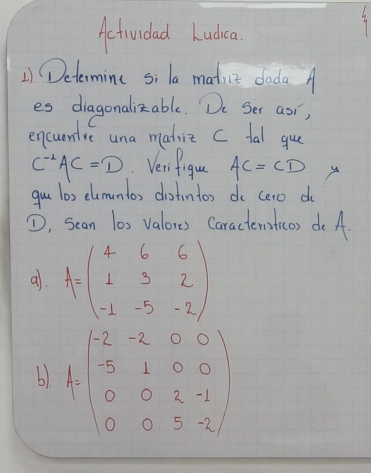 Actividad Ludica.
1). Determine si la matriz dada A
es diagonalizable. De ser así,
encuentre una matriz C tal que
C⁻¹AC = D. Verifique AC = CD y
que los elementos distintos de cero de
D, Sean los valores característicos de A.
a). A = ( 4 6 6
1 3 2
-1 -5 -2 )
b). A = ( -2 -2 0 0
-5 1 0 0
0 0 2 -1
0 0 5 -2 )